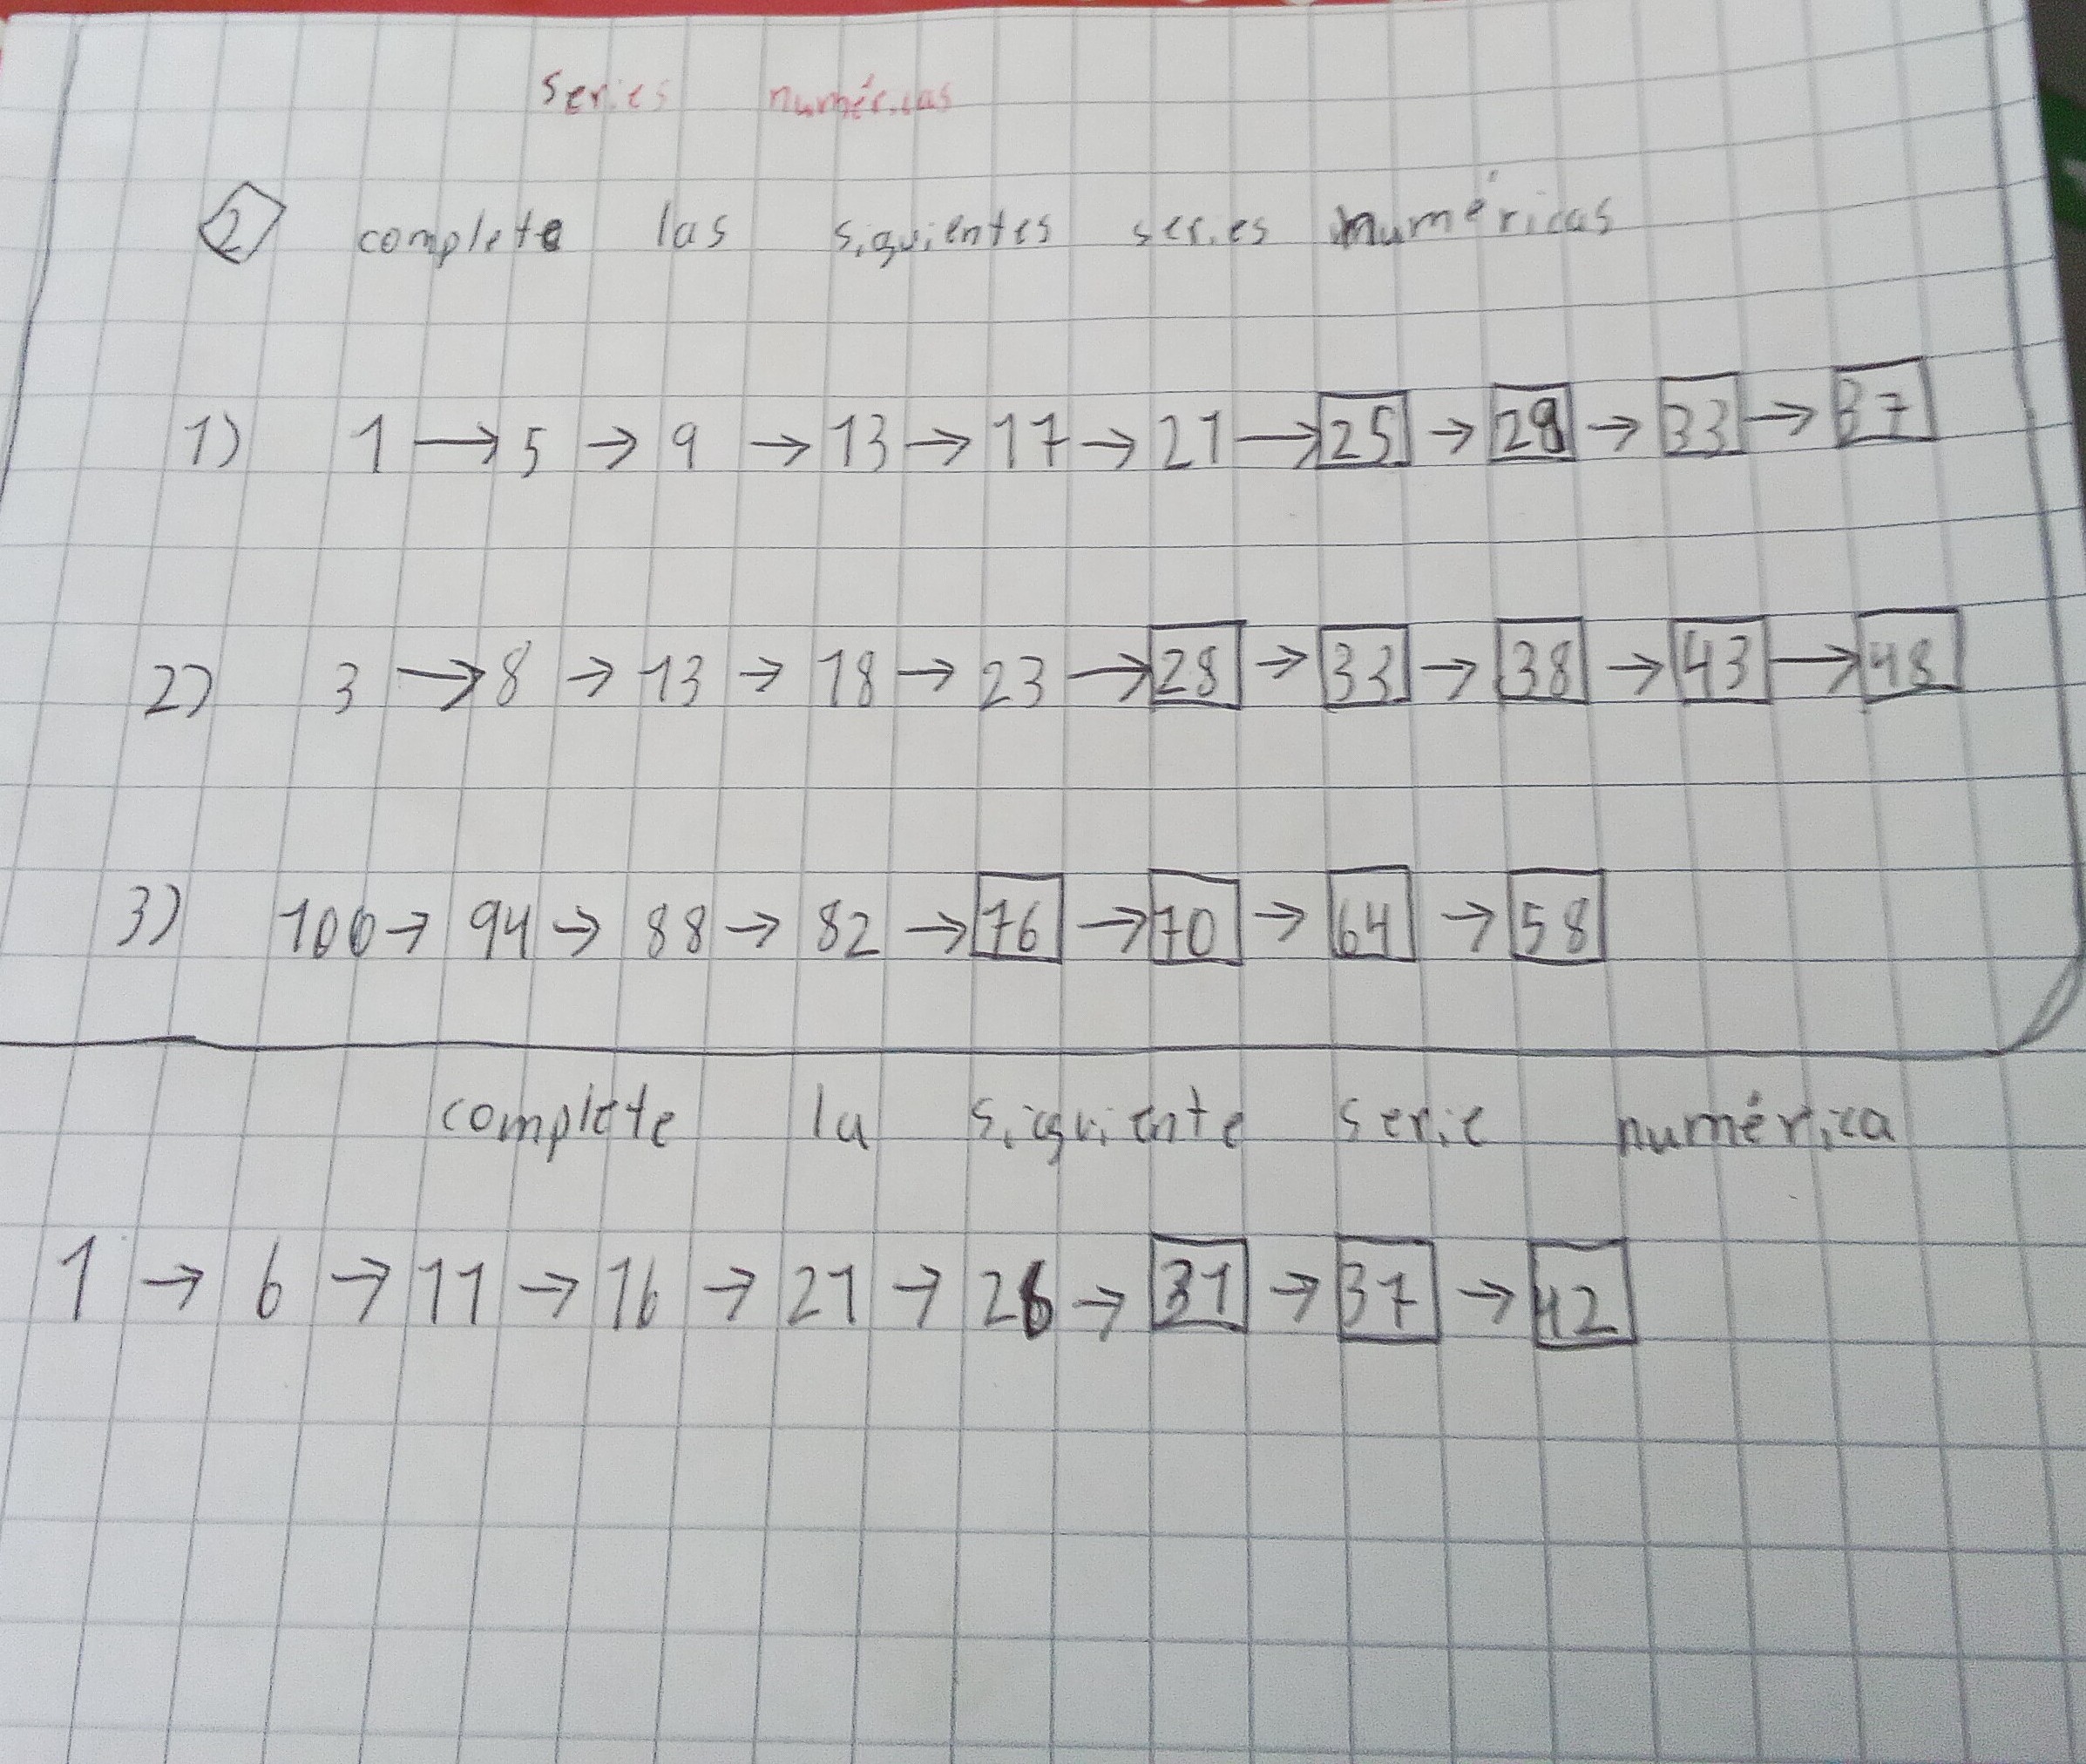 series numéricas
2 complete las siguientes series numéricas
1) 1 → 5 → 9 → 13 → 17 → 21 → 25 → 29 → 33 → 37
2) 3 → 8 → 13 → 18 → 23 → 28 → 33 → 38 → 43 → 48
3) 100 → 94 → 88 → 82 → 76 → 70 → 64 → 58
complete la siguiente serie numérica
1 → 6 → 11 → 16 → 21 → 26 → 31 → 37 → 42